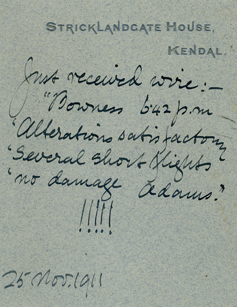 STRICKLANDGATE HOUSE,
KENDAL.
Just received wire:-
"Bowness 5.42 p.m
'Alterations satisfactory
'Several short flights
'no damage Adams."
!!!!!
25 Nov. 1911